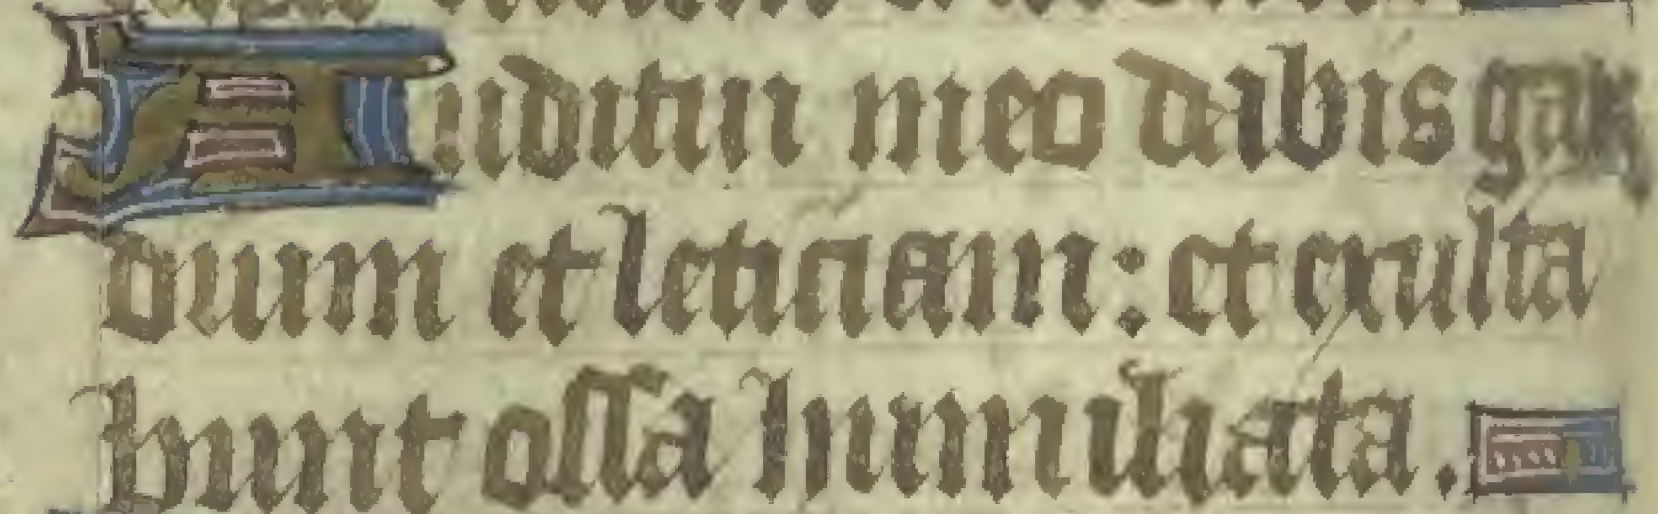 Auditui meo dabis gau
dium et leticiam: et exulta
bunt ossa humiliata.